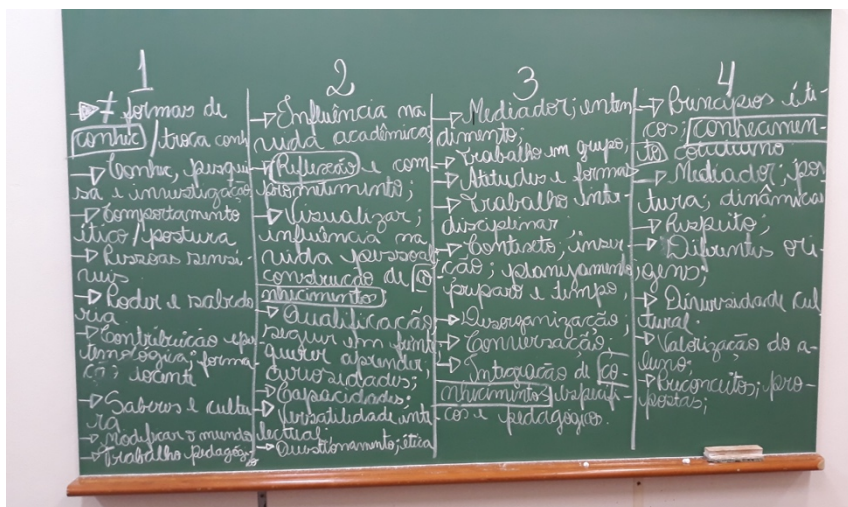 1
→ ≠ formas de
conhec / troca conh
→ Conhec, pesqui-
sa e investigação
→ Comportamento
ético / postura
→ Pessoas sensí-
veis
→ Poder e sabedo
ria
→ Contribuição epis
temológica forma
ção docente
→ Saberes e cultu
ra
→ Modificar o mundo
→ Trabalho pedagóg
2
→ Influência na
vida acadêmica
→ Reflexão e com
prometimento;
→ Visualizar;
influência na
vida pessoal
construção de co
nhecimentos
→ Qualificação
seguir em frente
querer aprender,
curiosidades;
→ Capacidades;
→ Versatilidade inte
lectual;
→ Questionamento; ética
3
→ Mediador; enten
dimento;
→ Trabalho em grupo;
→ Atitudes e formas
→ Trabalho inter
disciplinar
→ Contexto; inser
ção; planejamento;
preparo e tempo;
→ Desorganização;
→ Conversação;
→ Integração de co-
nhecimentos específi-
cos e pedagógicos.
4
→ Princípios éti-
cos; conhecimen-
to cotidiano
→ Mediador; pos
tura, dinâmica
→ Respeito;
→ Diferentes ori-
gens;
→ Diversidade cul
tural.
→ Valorização do a-
luno;
→ Preconceitos; pro-
postas;